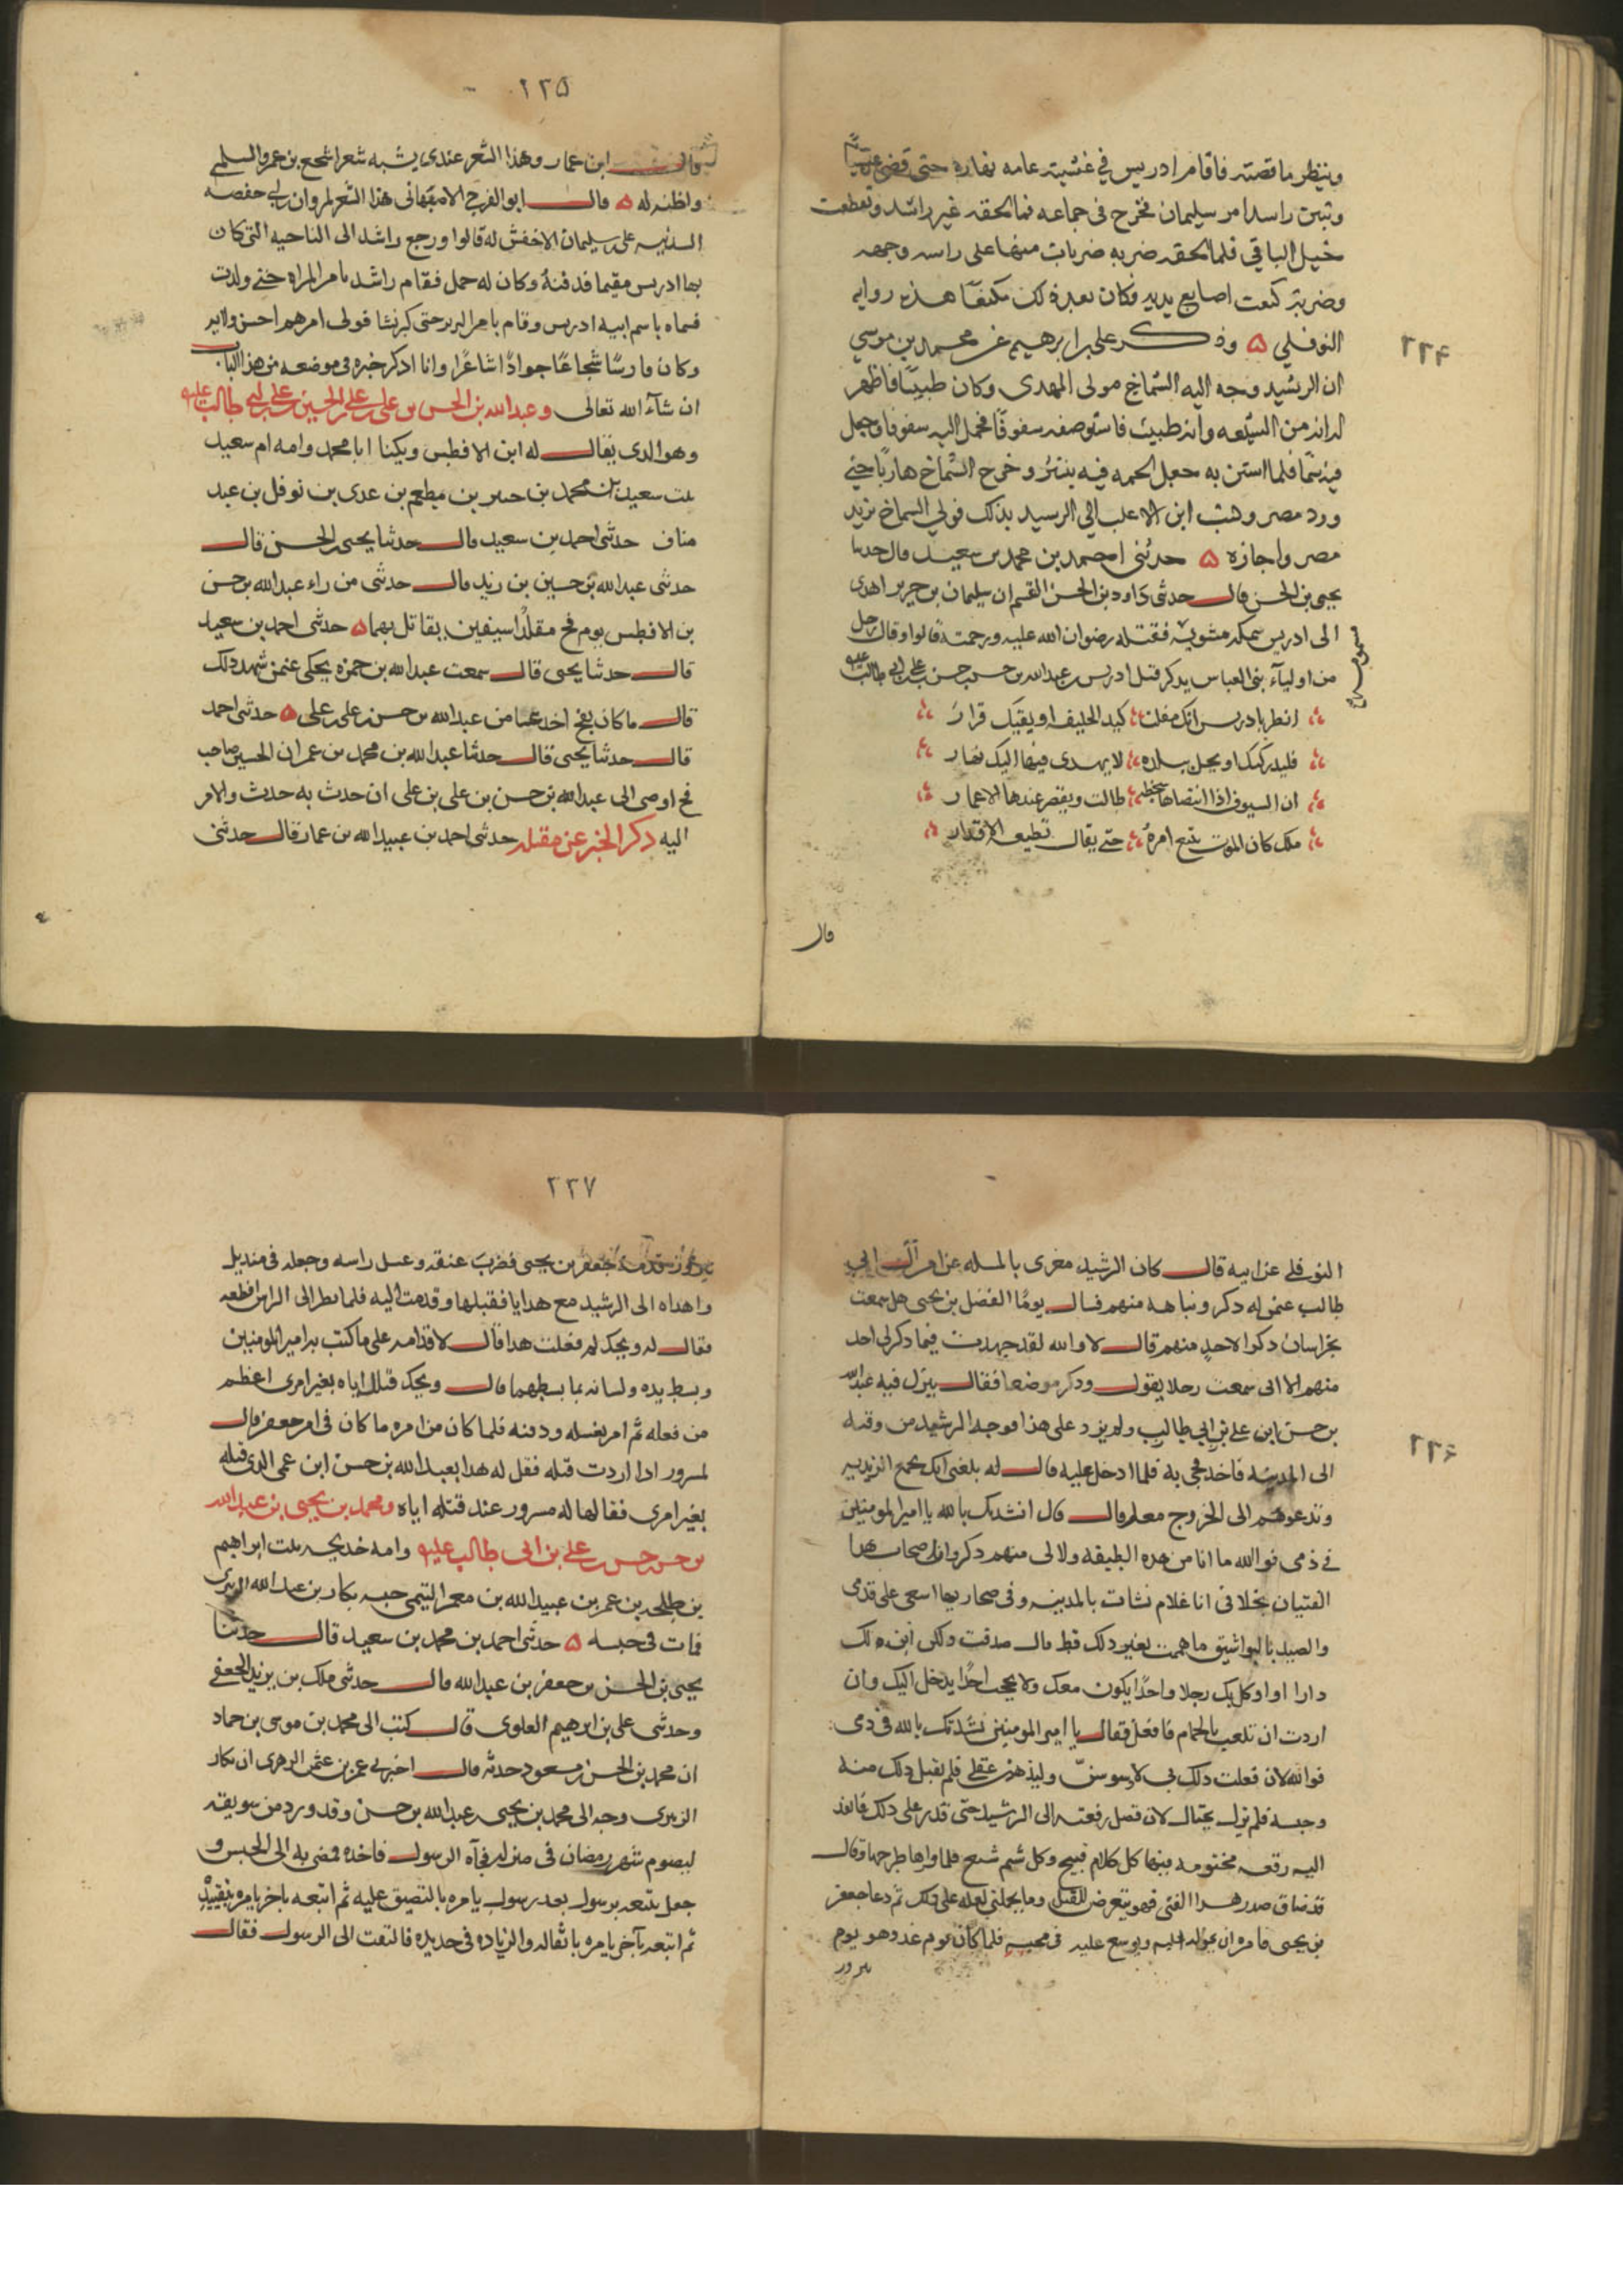 وينظر ما قصته فاقام ادريس في غشيته عامه نهاره حتى قضى عشيا
وتبين راشد امر سليمان فخرج في جماعه فما لحقه غير راشد وتقطعت
خيل الباقي فلما لحقه ضربه ضربات منها على راسه ووجهه
وضربه كنعت اصابع يديه وكان بعد ذلك مكنعا هذه روايه
النوفلي ۵ وذكر علي بن ابرهيم عن محمد بن موسي
ان الرشيد وجه اليه الشماخ مولى المهدى وكان طبيبا فاظهر
له انه من الشيعه وانه طبيب فاستوصفه سفوفا فحمل اليه سفوفا وجعل
فيه سما فلما استن به جعل لحمه فيه ينتثر وخرج الشماخ هاربا حتى
ورد مصر وكتب ابن الاغلب الى الرشيد بذلك فولى الشماخ بريد
مصر واجازه ۵ حدثنى احمد بن محمد بن سعيد قال حدثنا
يحيى بن الحسن قال حدثى داود بن الحسن القسم ان سليمان بن جرير اهدى
الى ادريس سمكه مشويه فقتله رضوان الله عليه ورحمته قالوا وقال رجل
من اوليآء بنى العباس يذكر قتل ادريس بن عبد الله بن حسن بن حسن بن علي بن ابي طالب
اتظن يا ادريس انك مفلت كيد الخليفه او يقيك فرار
فليدركنك او تحل ببلده لا يهتدى فيها اليك نهار
ان السيوف اذا انتضاها سخطه طالت ويقصر عندها الاعمار
ملك كان الموت يتبع امره حتى يقال تطيعه الاقدار
قال
٢٢٤
٢٢٥
قال ابن عمار وهذا الشعر عندى يشبه شعر اشجع بن عمرو السلمى
واظنه له ۵ قال ابو الفرج الاصبهانى هذا الشعر لمروان بن ابي حفصه
انشدنيه على بن سليمان الاخفش له قالوا ورجع راشد الى الناحيه التى كان
بها ادريس مقيما فدفنه وكان له حمل فقام راشد بامر المراه حتى ولدت
فسماه باسم ابيه ادريس وقام بامر البربر حتى كبر نشا فولى امرهم احسن ولايه
وكان فارسا شجاعا جوادا شاعرا وانا اذكر خبره فى موضعه من هذا الباب
ان شآء الله تعالى وعبد الله بن الحسن بن على بن على بن الحسين بن على بن ابي طالب عليه
وهو الذى يقال له ابن الافطس ويكنا ابا محمد وامه ام سعيد
بنت سعيد بن محمد بن جبير بن مطعم بن عدى بن نوفل بن عبد
مناف حدثى احمد بن سعيد قال حدثنا يحيى بن الحسن قال
حدثى عبد الله بن حسين بن زيد قال حدثى من راء عبد الله بن حسن
بن الافطس يوم فخ مقلدا سيفين يقاتل بهما ۵ حدثى احمد بن سعيد
قال حدثنا يحيى قال سمعت عبد الله بن حمزه يحكى عن من شهد ذلك
قال ما كان بفخ احد غنا من عبد الله بن حسن بن على بن على ۵ حدثى احمد
قال حدثنا يحيى قال حدثنا عبد الله بن محمد بن عمر ان الحسين صاحب
فخ اوصى الى عبد الله بن حسن بن على بن على ان حدث به حدث والامر
اليه ذكر الخبر عن مقتله حدثى احمد بن عبيد الله بن عمار قال حدثنى
النوفلى عن ابيه قال كان الرشيد مغرى بالمسله عن امر آل ابي
طالب عمن له ذكر ونباهه منهم فسال يوما الفضل بن يحيى هل سمعت
بخراسان ذكرا لاحد منهم قال لا والله لقد جهدت فيما ذكر لى احد
منهم الا انى سمعت رجلا يقول وذكر موضعا فقال ينزل فيه عبد الله
بن حسن ابن علي بن ابي طالب ولم يزد على هذا فوجه الرشيد من وقته
الى المدينه فاخذ فجى به فلما ادخل عليه قال له بلغنى انك تجمع الزيديه
وتدعوهم الى الخروج معك قال انشدك بالله يا امير المومنين
فى دمى فوالله ما انا من هذه الطبقه ولا لى منهم ذكر وان اصحاب هذا
الفتيان بخلافى انا غلام نشات بالمدينه وفى صحاريها اسعى على قدمى
والصيد بالبواشيق ما هممت بغير ذلك قط قال صدقت ولكن انزلك
دارا او اوكل بك رجلا واحدا يكون معك ولا يحجب احدا يدخل اليك وان
اردت ان تلعب بالحمام فافعل فقال يا امير المومنين نشدتك بالله فى دمى
فوالله لان فعلت ذلك بى لاوسوسن وليذهبن عقلى فلم يقبل ذلك منه
وحبسه فلم يزل يحتال لان تصل رقعته الى الرشيد حتى قدر على ذلك فانفذ
اليه رقعه مختومه فيها كل كلام قبيح وكل شتم شنيع فلما قراها طرحها وقال
قد ضاق صدر هذا الفتى فهو يتعرض للقتل وما يحملنى فعله على ذلك ثم دعا جعفر
بن يحيى فامره ان يحوله اليه ويوسع عليه فى محبسه فلما كان يوم غد وهو يوم
نيروز
٢٢٦
٢٢٧
نيروز قدمه جعفر بن يحيى فضرب عنقه وغسل راسه وجعله فى منديل
واهداه الى الرشيد مع هدايا فقبلها وقدمت اليه فلما نظر الى الراس افظعه
فقال له ويحك لم فعلت هذا قال لاقدامه على ما كتب به امير المومنين
وبسط يده ولسانه بما بسطهما قال ويحك قتلك اياه بغير امرى اعظم
من فعله ثم امر بغسله ودفنه فلما كان من امره ما كان فى امر جعفر قال
لمسرور اذا اردت قتله فقل له هذا بعبد الله بن حسن ابن عمى الذى قتلته
بغير امرى فقالها له مسرور عند قتله اياه ومحمد بن يحيى بن عبد الله
بن حسن بن حسن بن علي بن ابى طالب عليه وامه خديجه بنت ابراهيم
بن طلحه بن عمر بن عبيد الله بن معمر التيمى حبسه بكار بن عبد الله الزبيرى
فمات فى حبسه ۵ حدثى احمد بن محمد بن سعيد قال حدثنا
يحيى بن الحسن بن جعفر بن عبد الله قال حدثى ملك بن يزيد الجعفى
وحدثى على بن ابرهيم العلوى قال كتب الى محمد بن موسى بن حماد
ان محمد بن الحسن بن مسعود حدثه قال اخبرنى عمر بن عثمن الزهرى ان بكار
الزبيرى وجه الى محمد بن يحيى بن عبد الله بن حسن وقد ورد من سويقه
ليصوم شهر رمضان فى منزله فجآه الرسول فاخذه فمضى به الى الحبس و
جعل يتبعه برسول بعد رسول يامره بالتضيق عليه ثم اتبعه باخر يامره بتقييده
ثم اتبعه بآخر يامره باثقاله والزياده فى حديده فالتفت الى الرسول فقال